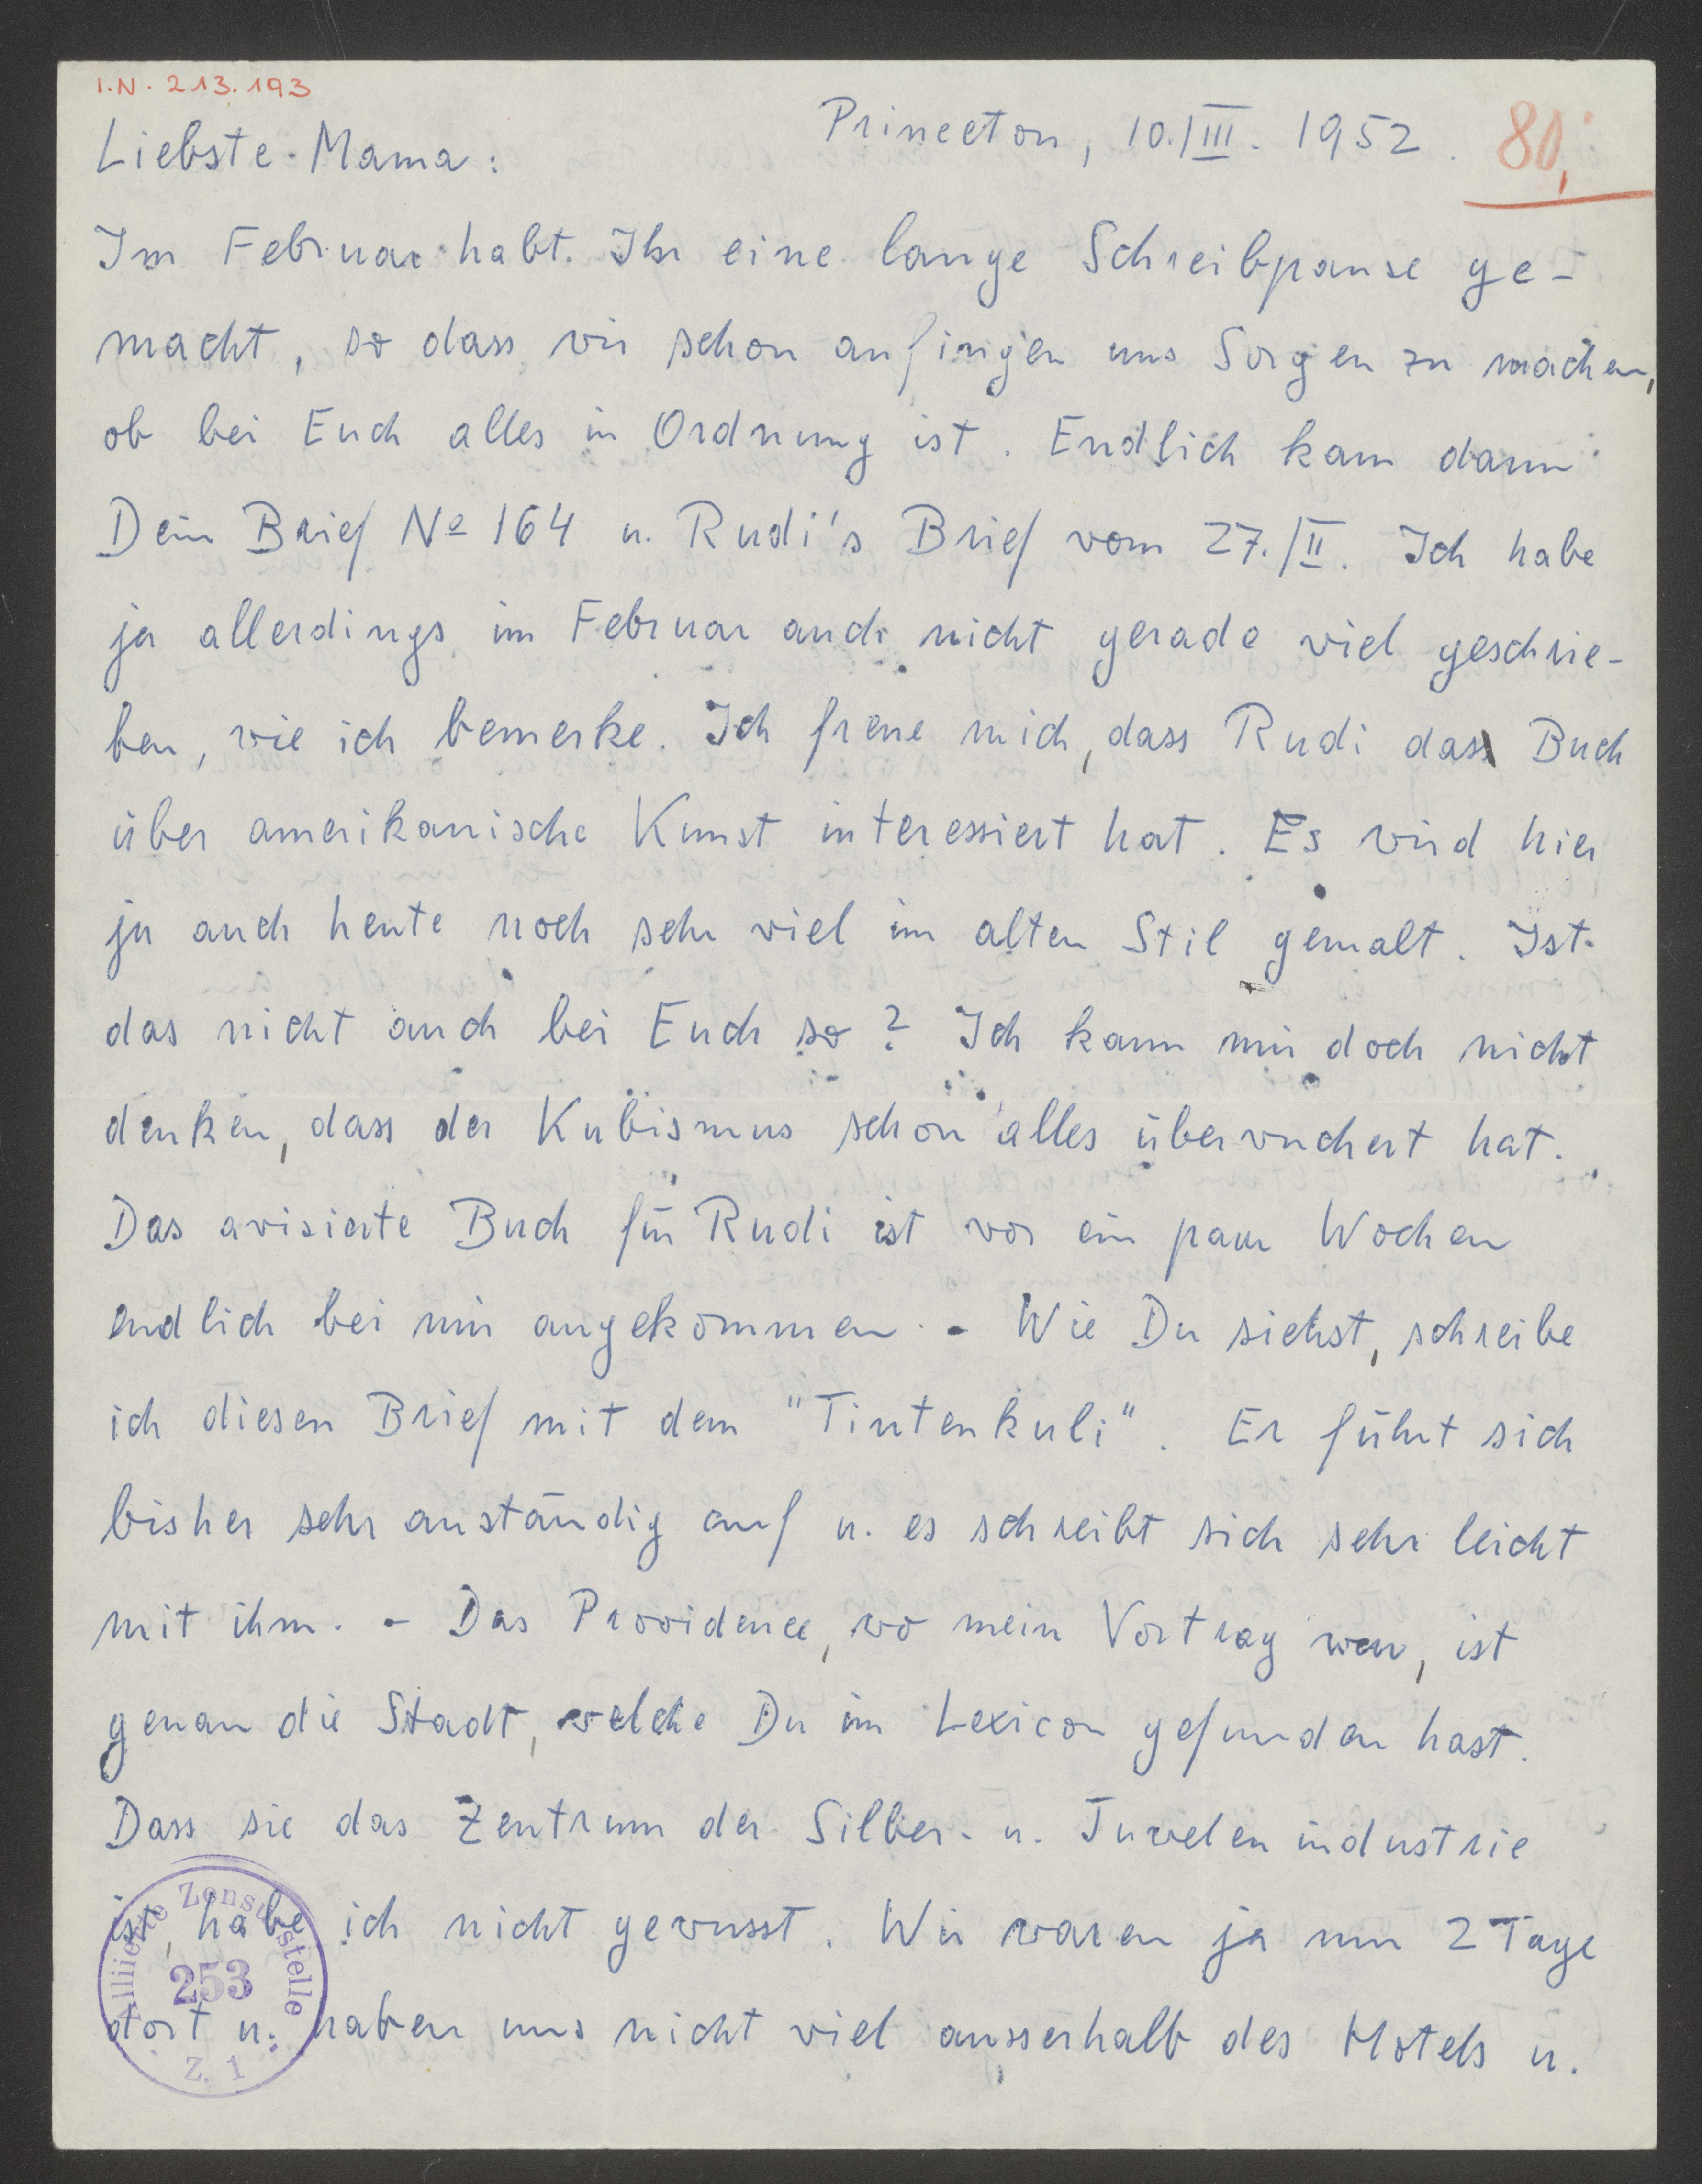 I.N. 213.193
Princeton, 10./III. 1952.
80,
Liebste Mama:
Im Februar habt Ihr eine lange Schreibpause ge-
macht, so dass wir schon anfingen uns Sorgen zu machen,
ob bei Euch alles in Ordnung ist. Endlich kam dann
Dein Brief No 164 u. Rudi's Brief vom 27./II. Ich habe
ja allerdings im Februar auch nicht gerade viel geschrie-
ben, wie ich bemerke. Ich freue mich, dass Rudi das Buch
über amerikanische Kunst interessiert hat. Es wird hier
ja auch heute noch sehr viel im alten Stil gemalt. Ist
das nicht auch bei Euch so? Ich kann mir doch nicht
denken, dass der Kubismus schon alles überwuchert hat.
Das avisierte Buch für Rudi ist vor ein paar Wochen
endlich bei mir angekommen. - Wie Du siehst, schreibe
ich diesen Brief mit dem "Tintenkuli". Er führt sich
bisher sehr anständig auf u. es schreibt sich sehr leicht
mit ihm. - Das Providence, wo mein Vortrag war, ist
genau die Stadt, welche Du im Lexicon gefunden hast.
Dass sie das Zentrum der Silber- u. Juwelenindustrie
ist, habe ich nicht gewusst. Wir waren ja nur 2 Tage
dort u. haben uns nicht viel ausserhalb des Hotels u.
Alliierte Zensurstelle
253
Z. 1